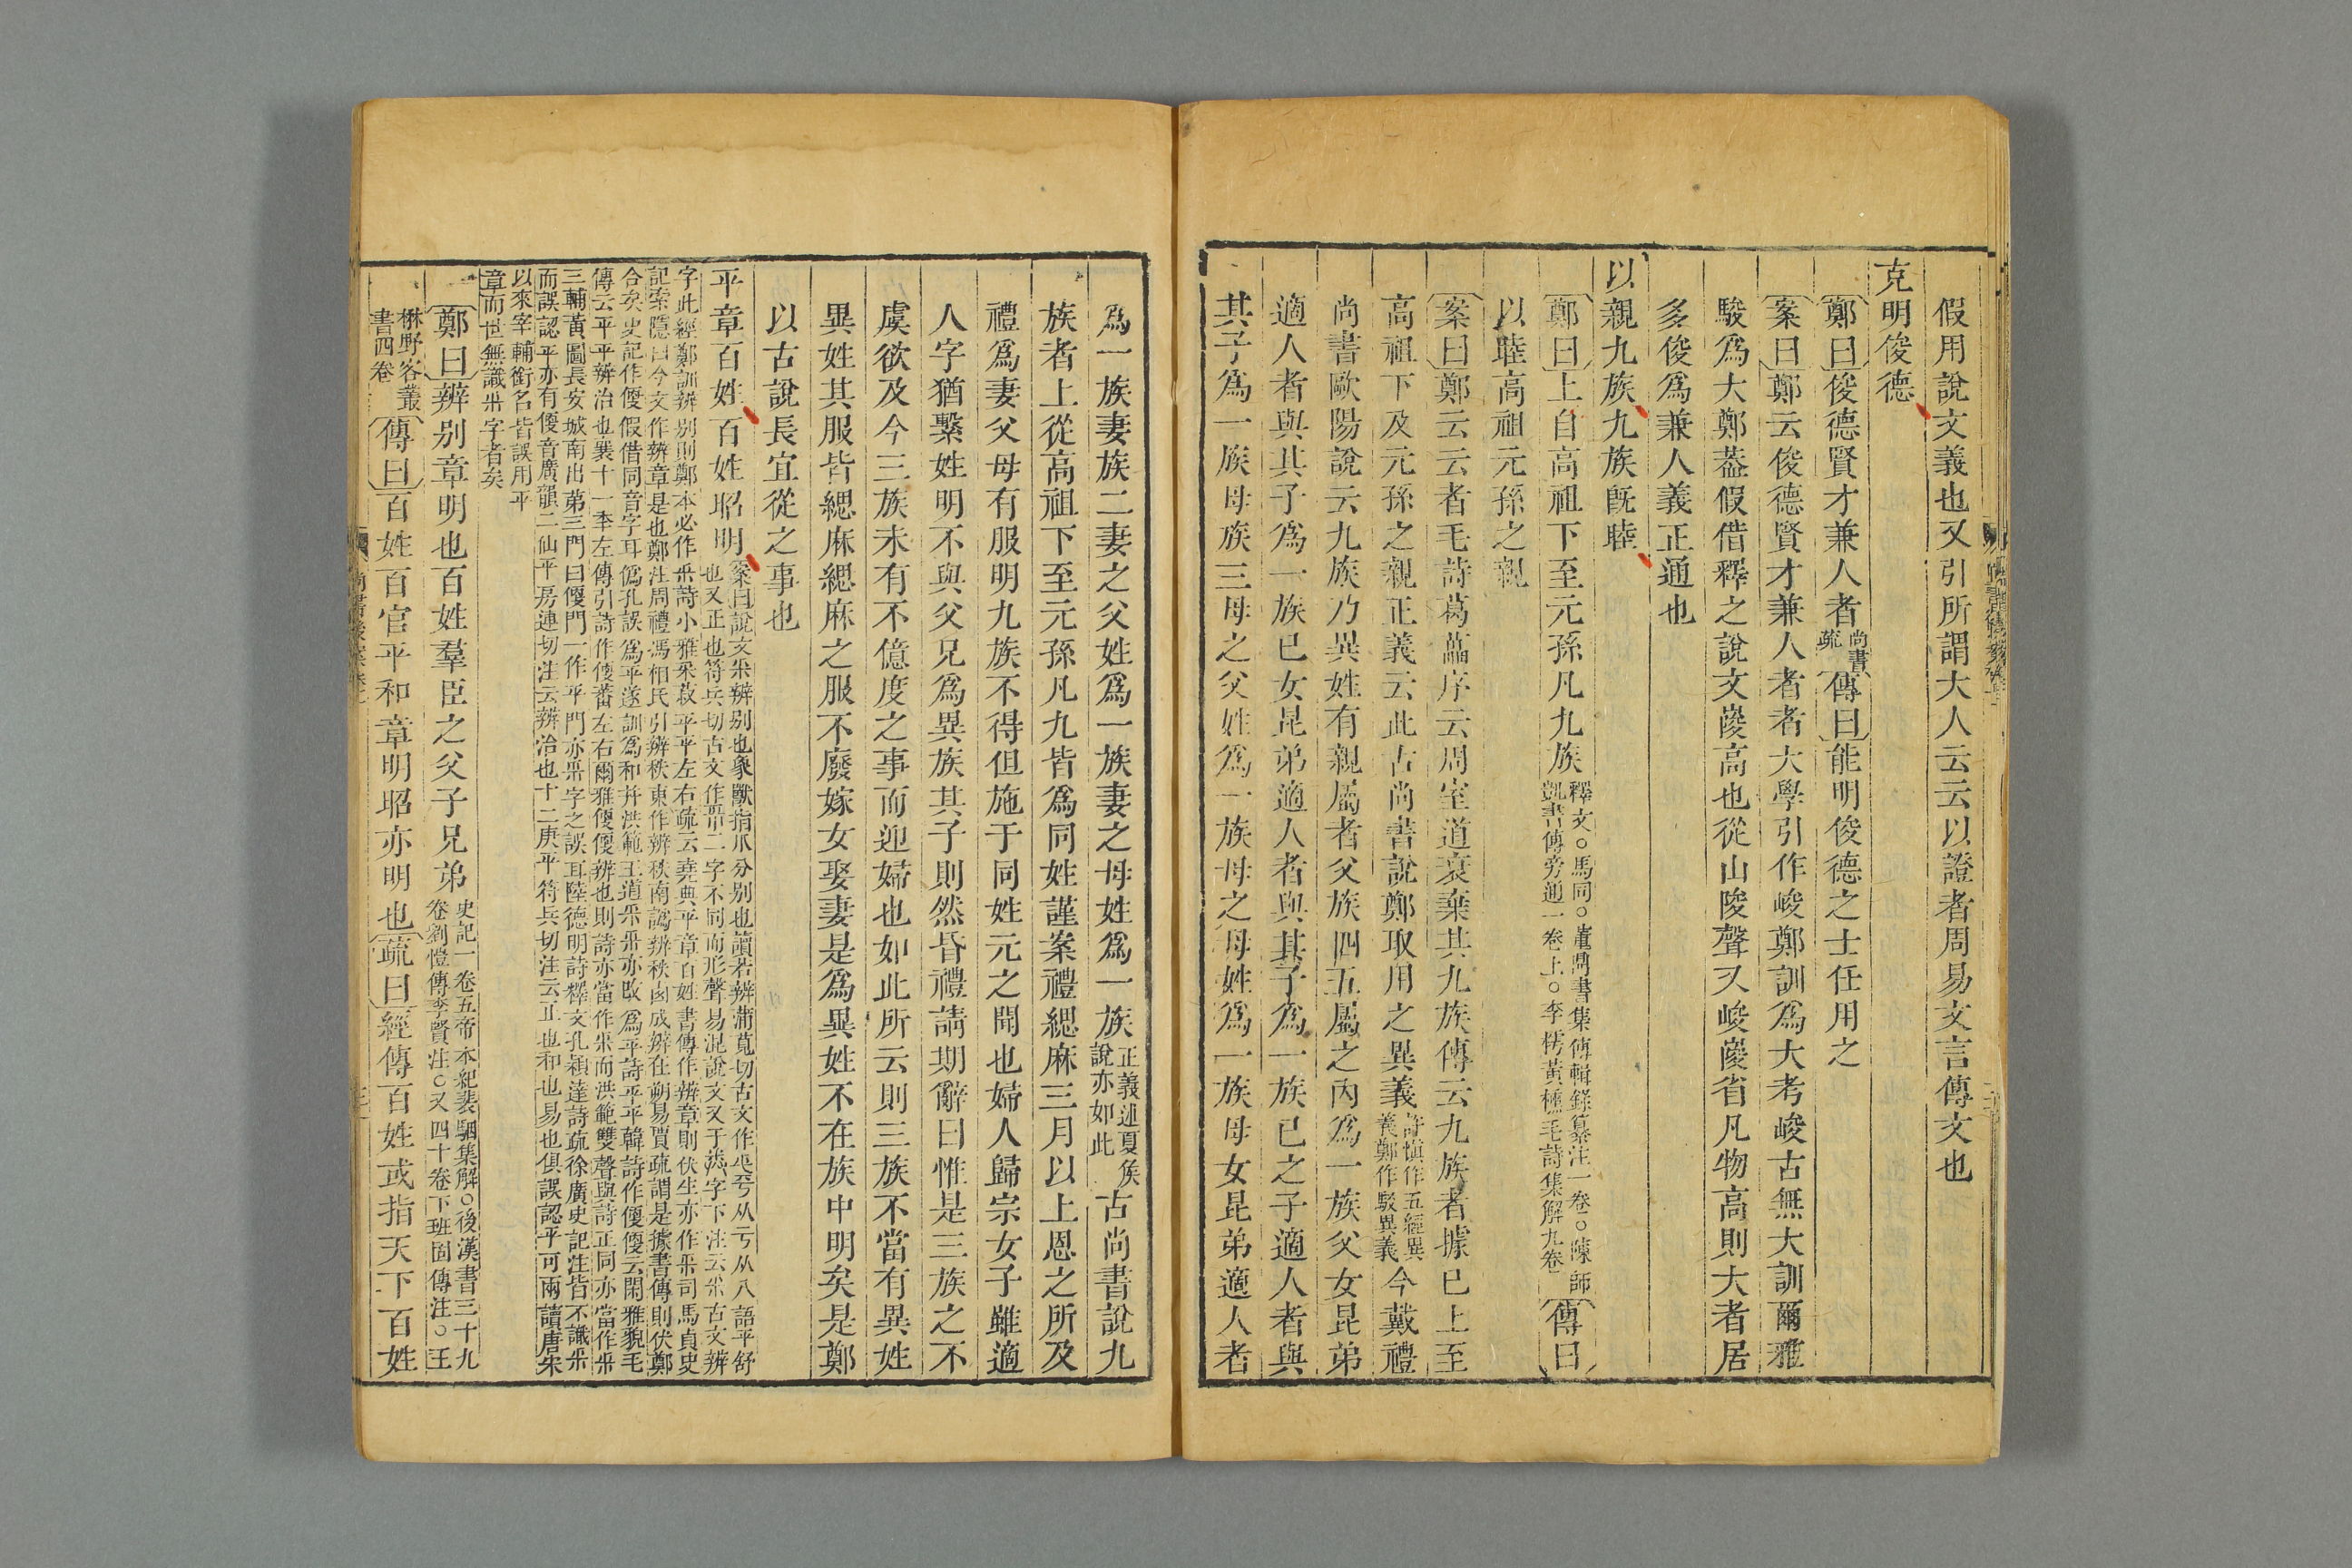 假用說文義也又引所謂大人云云以證者周易文言傳文也
克明俊德
鄭曰俊德賢才兼人者尚書疏傳曰能明俊德之士任用之
案曰鄭云俊德賢才兼人者者大學引作峻鄭訓為大考峻古無大訓爾雅
駿為大鄭葢假借釋之說文㕙高也從山陵聲又峻㕙省凡物高則大者居
多俊為兼人義正通也
以親九族九族旣睦
鄭曰上自高祖下至元孫凡九族釋文○馬同○董鼎書集傳輯錄纂注一卷○陳師凱書傳旁通一卷上○李樗黃櫄毛詩集解九卷傳曰
以睦高祖元孫之親
案曰鄭云云者毛詩葛藟序云周室道衰棄其九族傳云九族者據已上至
高祖下及元孫之親正義云此古尚書說鄭取用之異義許愼作五經異義鄭作駁異義今戴禮
尚書歐陽說云九族乃異姓有親屬者父族四五屬之內為一族父女昆弟
適人者與其子為一族已女昆弟適人者與其子為一族已之子適人者與
其子為一族母族三母之父姓為一族母之母姓為一族母女昆弟適人者
為一族妻族二妻之父姓為一族妻之母姓為一族正義述夏侯說亦如此古尚書說九
族者上從高祖下至元孫凡九皆為同姓謹案禮緦麻三月以上恩之所及
禮為妻父母有服明九族不得但施于同姓元之聞也婦人歸宗女子雖適
人字猶繫姓明不與父兄為異族其子則然昏禮請期辭曰惟是三族之不
虞欲及今三族未有不億度之事而迎婦也如此所云則三族不當有異姓
異姓其服皆緦麻緦麻之服不廢嫁女娶妻是為異姓不在族中明矣是鄭
以古說長宜從之事也
平章百姓百姓昭明案曰說文釆辨別也象獸指爪分別也讀若辨蒲莧切古文作
也又正也符兵切古文作二字不同而形聲易混說文又于字下注云釆古文辨
字此經鄭訓辨別則鄭本必作釆詩小雅采菽平平左右疏云堯典平章百姓書傳作辨章則伏生亦作釆司馬貞史
記索隱曰今文作辨章是也鄭注周禮馮相氏引辨秩東作辨秩南譌辨秩西成辨在朔易賈疏謂是據書傳則伏鄭
合矣史記作便假借同音字耳僞孔誤為平遂訓為和幷洪範王道釆釆亦改為平詩平平韓詩作便便云閑雅貌毛
傳云平平辨治也襄十一年左傳引詩作便蕃左右爾雅便便辨也則詩亦當作釆而洪範雙聲與詩正同亦當作釆
三輔黃圖長安城南出第三門曰便門一作平門亦釆字之誤耳陸德明詩釋文孔穎達詩疏徐廣史記注皆不識釆
而誤認平亦有便音廣韻二仙平房連切注云辨治也十二庚平符兵切注云正也和也易也俱誤認平可兩讀唐宋
以來宰輔銜名皆誤用平
章而世無識釆字者矣
鄭曰辨別章明也百姓羣臣之父子兄弟史記一卷五帝本紀裴駰集解○後漢書三十九卷劉愷傳李賢注○又四十卷下班固傳注○王
楙野客叢書四卷傳曰百姓百官平和章明昭亦明也疏曰經傳百姓或指天下百姓